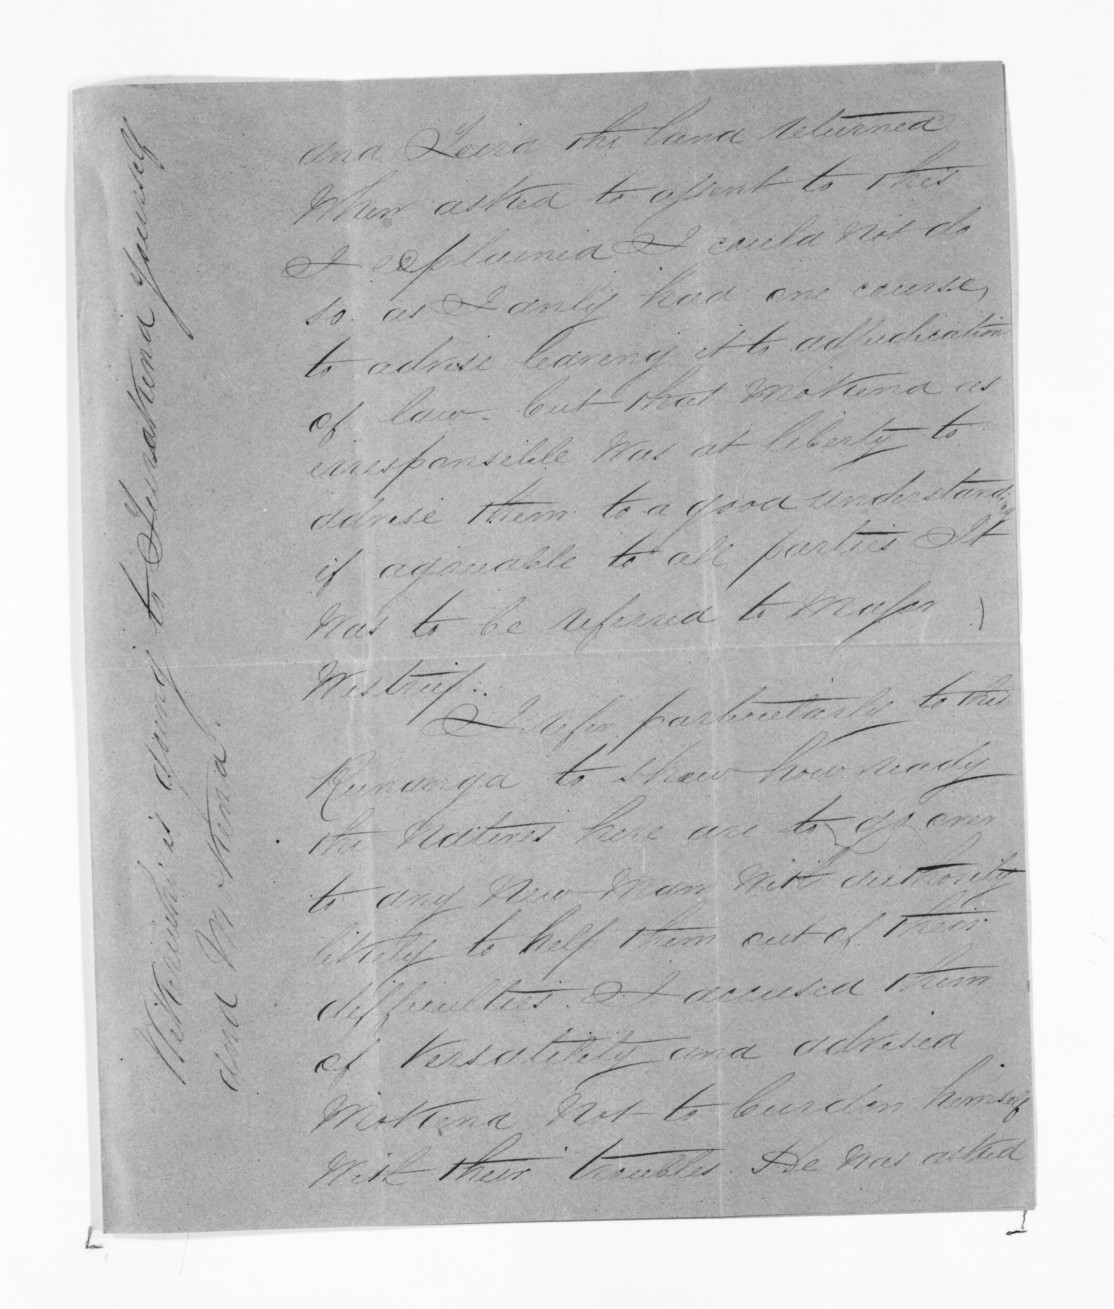 and Teira the land returned
When asked to assent to this
I explained I could not do
so as I only had one course,
to advise leaving it to adjudication
of law - but that Mokena as
irresponsible Was at liberty to
advise them to a good understanding
if agreeable to all parties It
Was to be referred to Major
Westrup.
I refer particularly to this
Runanga to shew how ready
the Natives here are to go over
to any New Man With authority
likely to help them out of their
difficulties. I accused them
of Versatility and advised
Mokena Not to burden himself
With their troubles. He Was asked
is going to yourself
and Mokena.